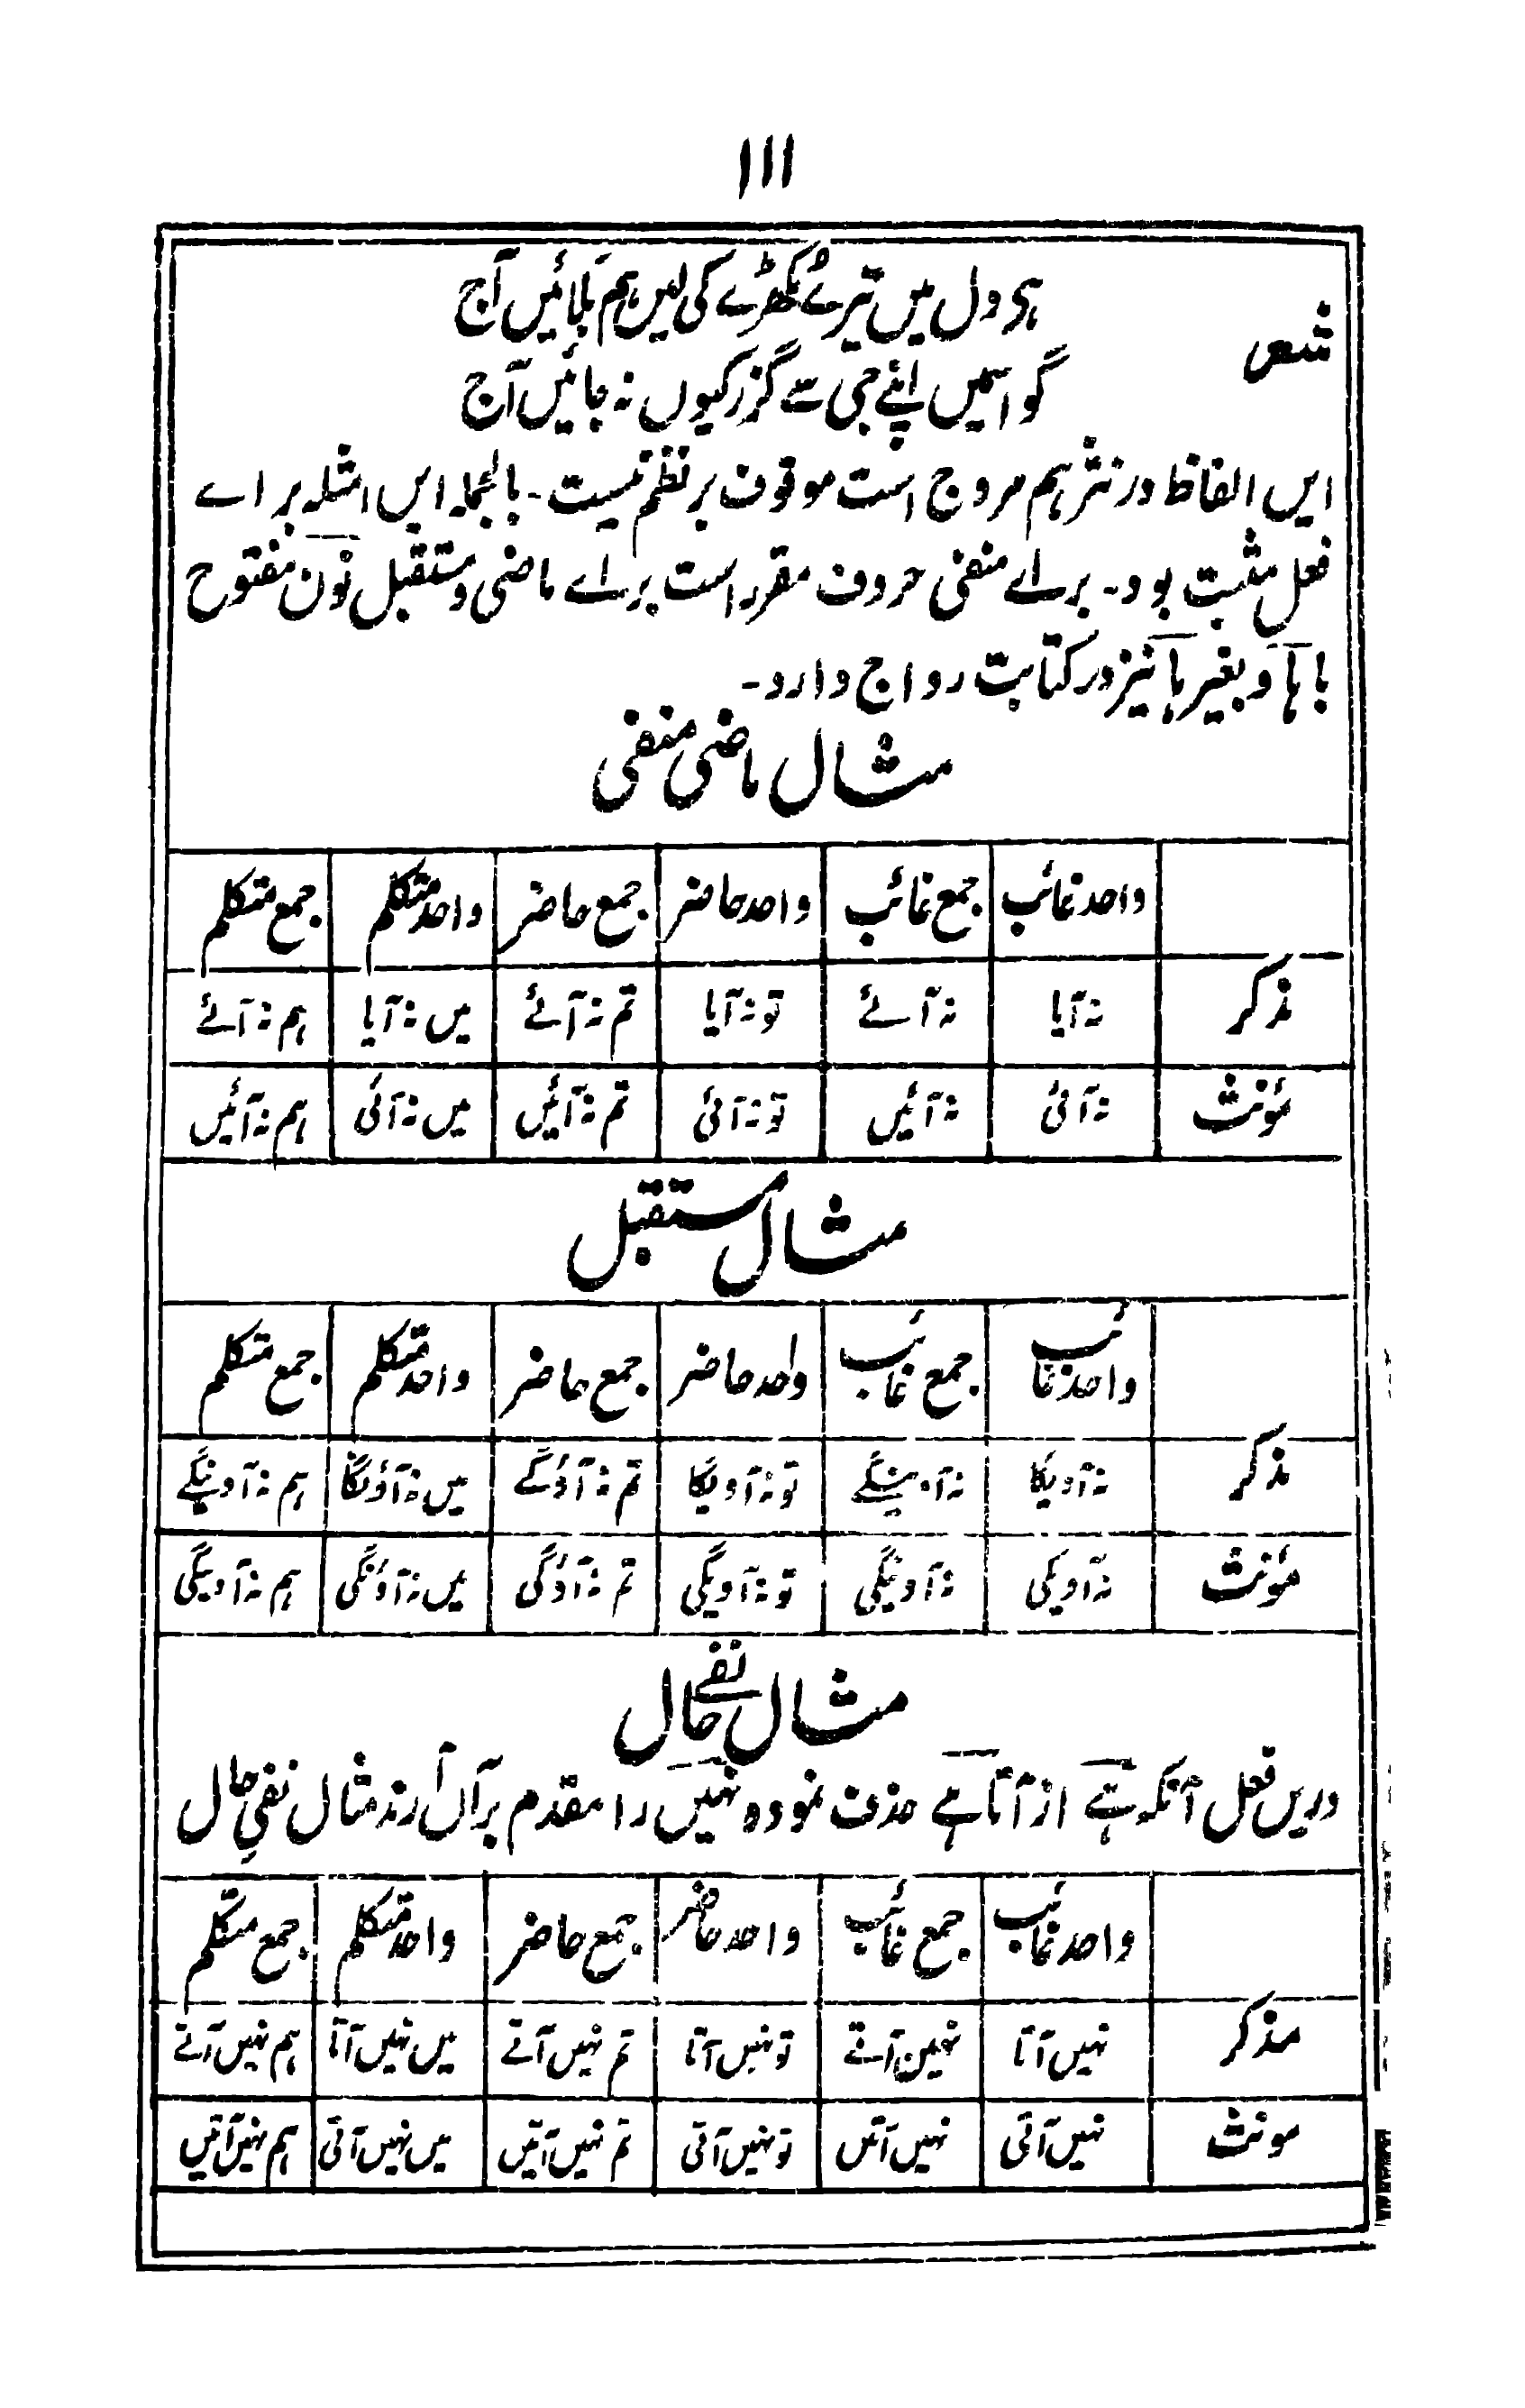 ۱۱۱
شعر
ہی دل میں تیرے مُکھڑے کی لیں ہم بَلائیں آج
گو اسمیں اپنے جی سے گزر کیوں نہ جائیں آج
ایں الفاظ در نثر ہم مروج است موقوف بر نظم نیست۔ بالجملہ ایں امثلہ براے
فعل مثبت بود۔ براے منفی حروف مقرر است براے ماضی و مستقبل نون مفتوح
با ہا و بغیر ہا نیز در کتابت رواج دارد۔
مثال ماضی منفی
واحد غائب جمع غائب واحد حاضر جمع حاضر واحد متکلم جمع متکلم
مذکر نہ آیا نہ آئے تو نہ آیا تم نہ آئے میں نہ آیا ہم نہ آئے
مؤنث نہ آئی نہ آئیں تو نہ آئی تم نہ آئیں میں نہ آئی ہم نہ آئیں
مثال مستقبل
واحد غائب جمع غائب واحد حاضر جمع حاضر واحد متکلم جمع متکلم
مذکر نہ آویگا نہ آوینگے تو نہ آویگا تم نہ آؤگے میں نہ آؤنگا ہم نہ آوینگے
مؤنث نہ آویگی نہ آوینگی تو نہ آویگی تم نہ آؤگی میں نہ آؤنگی ہم نہ آوینگی
مثال نفی حال
دریں فعل آنکہ ہے از آتا ہے حذف نمودہ نہیں را مقدم بر آں آرند مثال نفیِ حال
واحد غائب جمع غائب واحد حاضر جمع حاضر واحد متکلم جمع متکلم
مذکر نہیں آتا نہیں آتے تو نہیں آتا تم نہیں آتے میں نہیں آتا ہم نہیں آتے
مونث نہیں آتی نہیں آتیں تو نہیں آتی تم نہیں آتیں میں نہیں آتی ہم نہیں آتیں